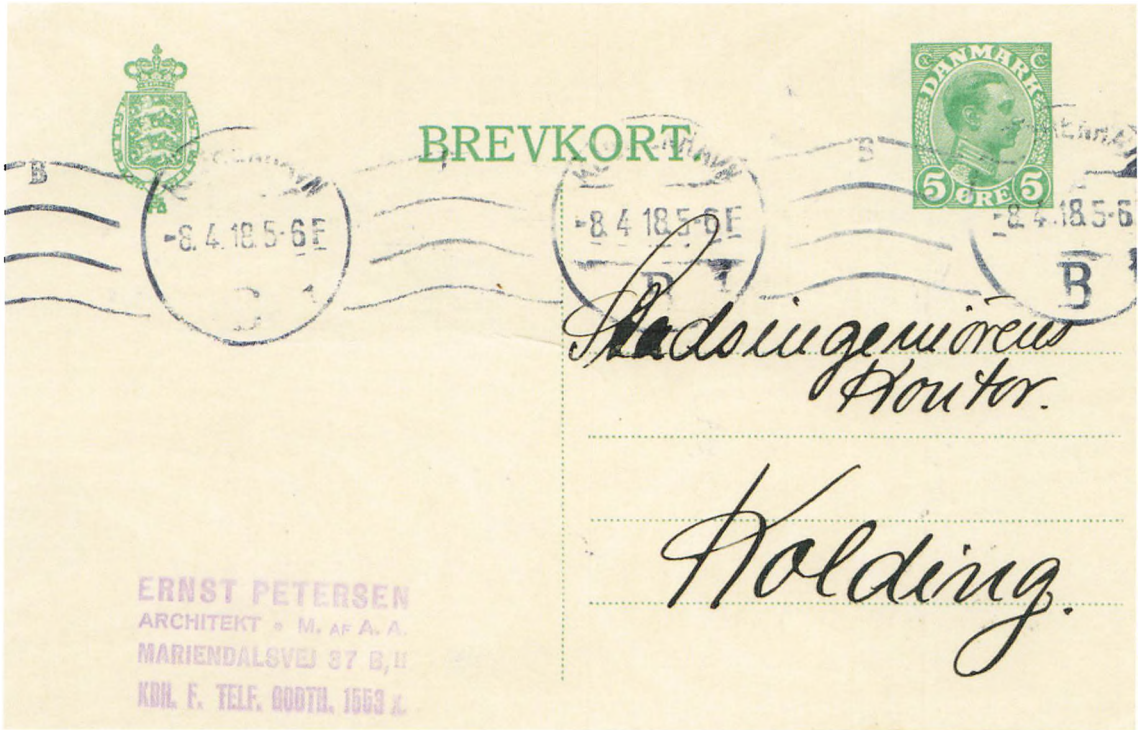 BREVKORT
DANMARK
5 ØRE 5
B
KØBENHAVN
-8.4.18.5-6F
B 1
KØBENHAVN
-8.4.18.5-6F
B 1
B
KØBENHAVN
-8.4.18.5-6
B
Stadsingeniörens
Kontor.
Kolding.
ERNST PETERSEN
ARCHITEKT • M. AF A. A.
MARIENDALSVEJ 87 B, II
KBH. F. TELF. GODTH. 1553